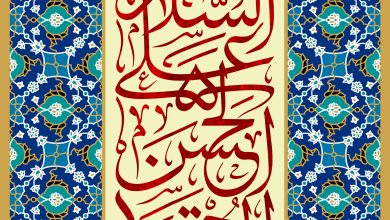 السلام
علی
الحسن
المجتبی